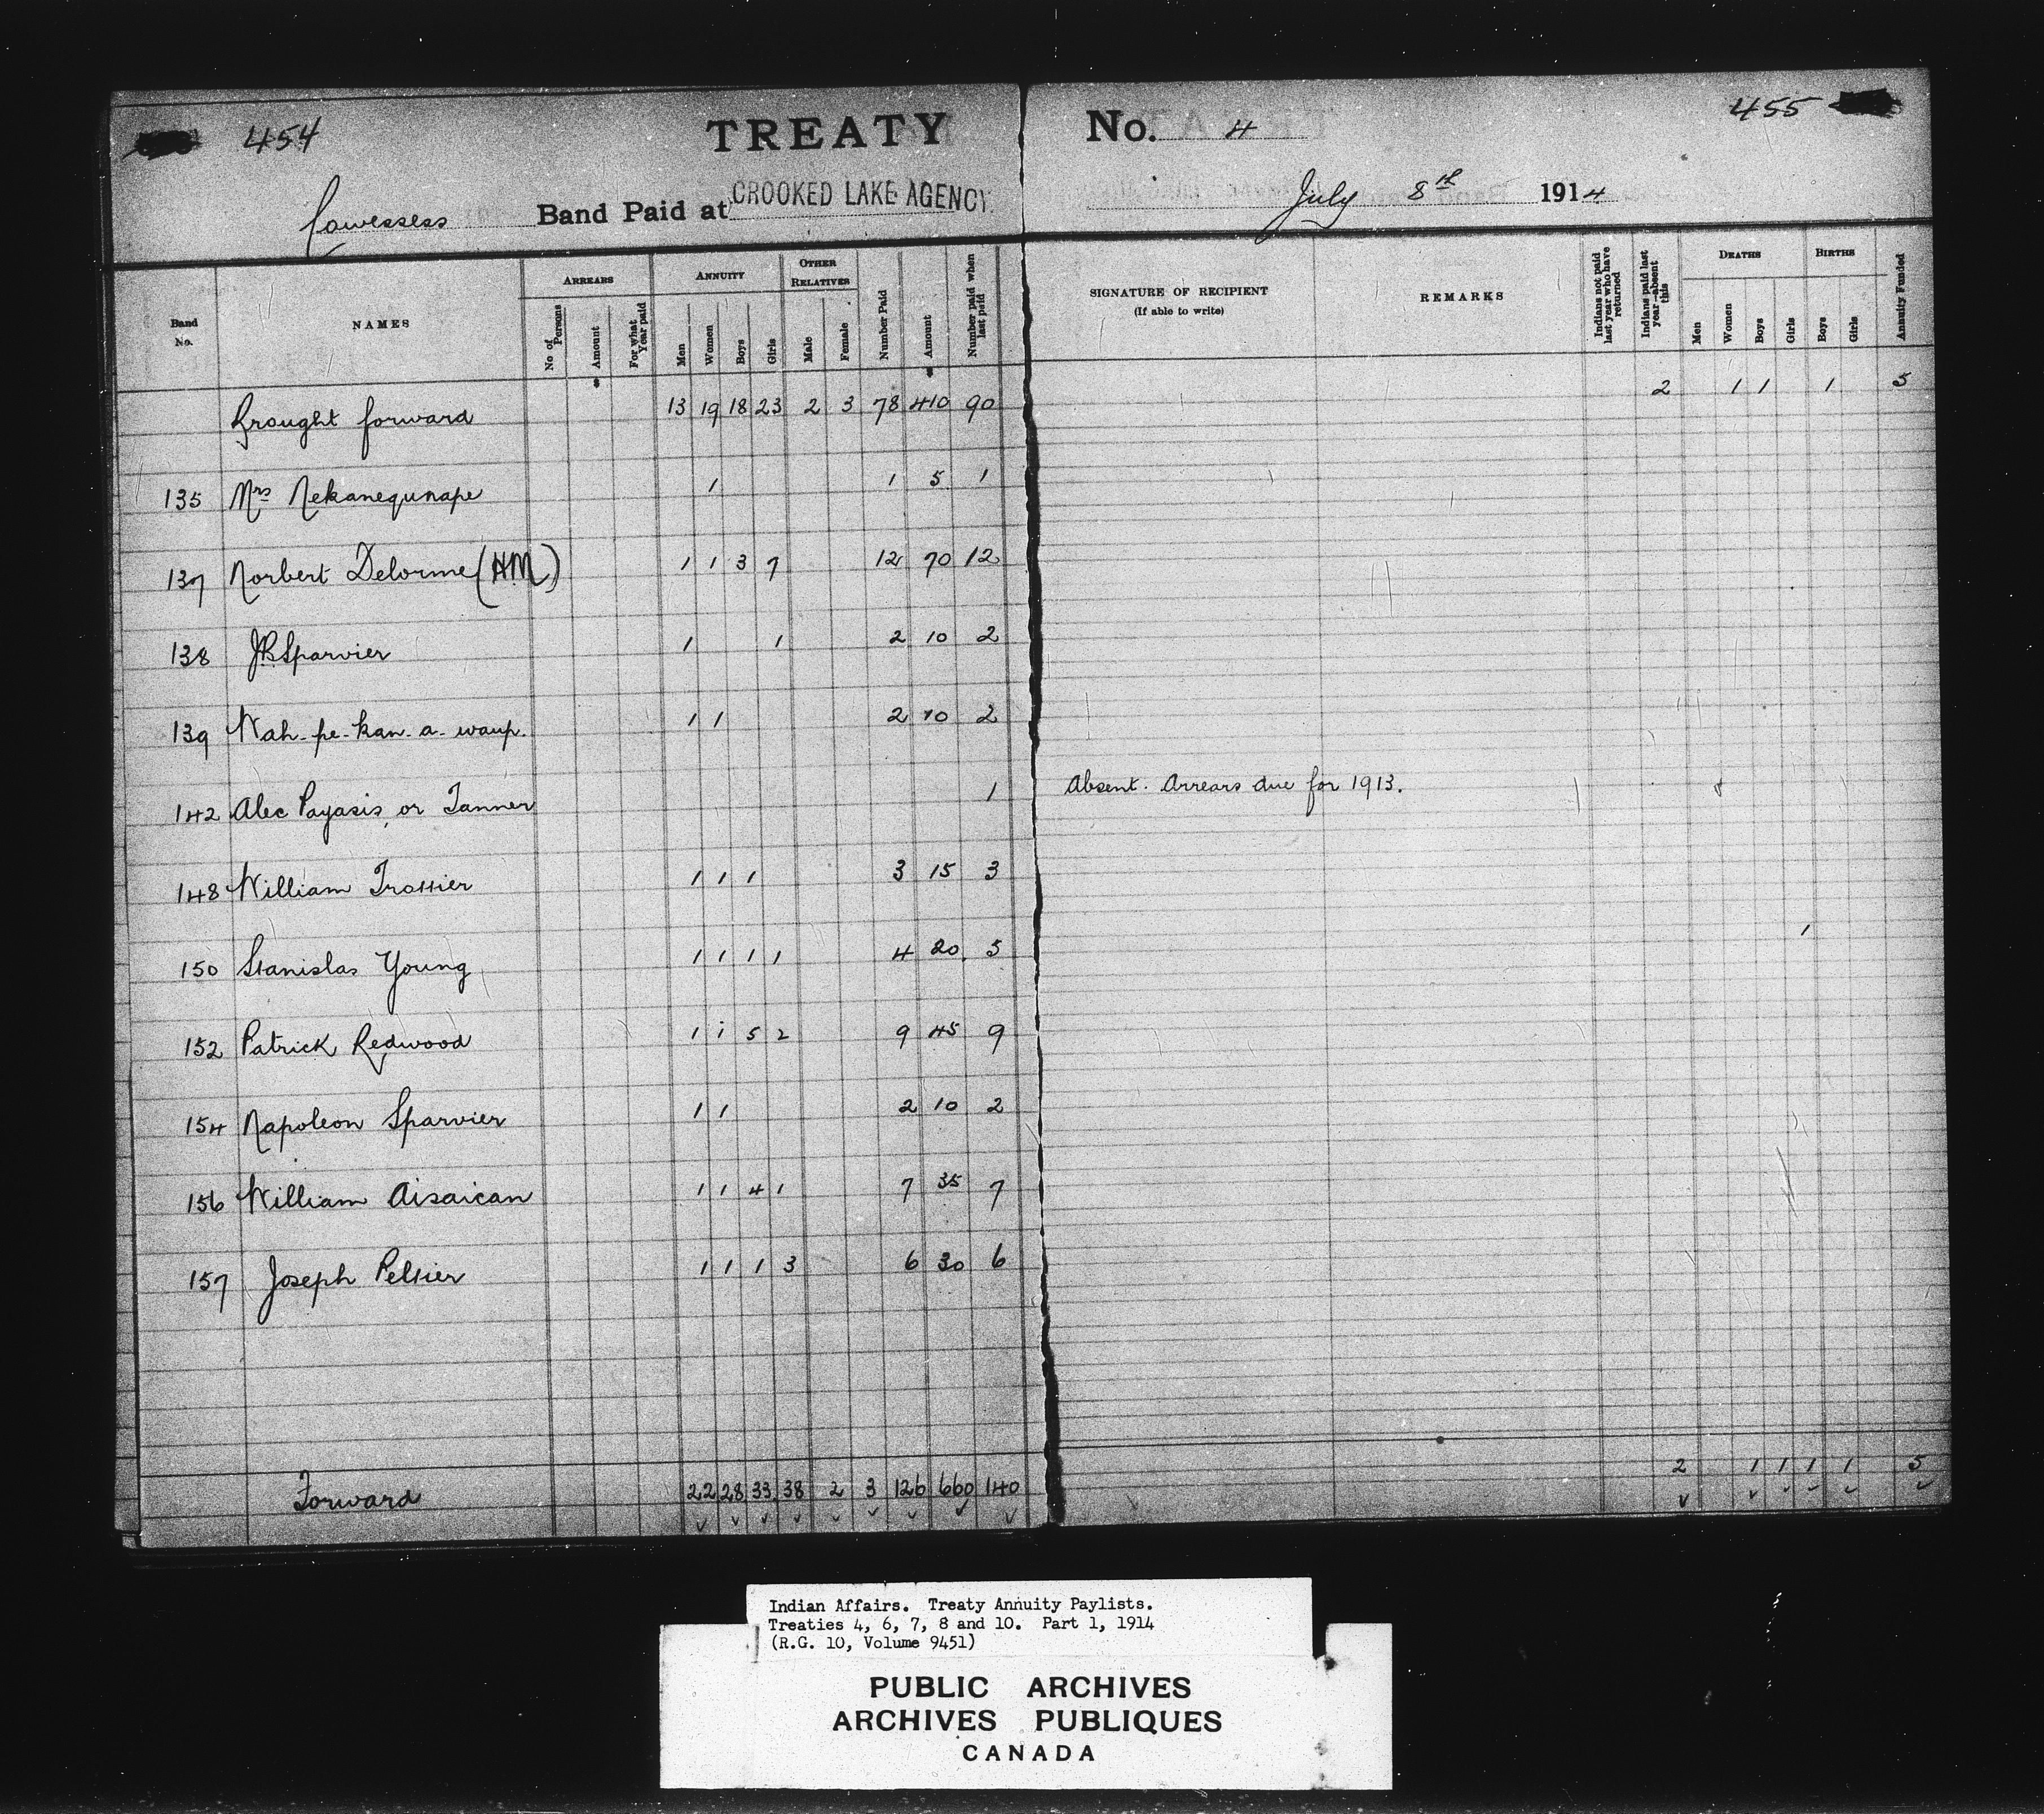 454 TREATY No. 4 455
Cowessess Band Paid at CROOKED LAKE AGENCY. July 8th 1914
Band No.
NAMES
ARREARS
No of Persons
Amount
For what Year paid
ANNUITY
Men
Women
Boys
Girls
OTHER RELATIVES
Male
Female
Number Paid
Amount
Number paid when last paid
SIGNATURE OF RECIPIENT
(If able to write)
REMARKS
Indians not paid last year who have returned
Indians paid last year—absent this
DEATHS
Men
Women
Boys
Girls
BIRTHS
Boys
Girls
Annuity Funded
Brought forward 13 19 18 23 2 3 78 410 90 2 1 1 1 5
135 Mrs Nekanequnape 1 1 5 1
137 Norbert Delorme (HM) 1 1 3 7 12 70 12
138 JB Sparvier 1 1 2 10 2
139 Wah-pe-kan-a-waup. 1 1 2 10 2
142 Alec Payasis, or Tanner 1 Absent. Arrears due for 1913.
148 William Trottier 1 1 1 3 15 3
150 Stanislas Young 1 1 1 1 4 20. 5 1
152 Patrick Redwood 1 1 5 2 9 45 9
154 Napoleon Sparvier 1 1 2 10 2
156 William Aisaican 1 1 4 1 7 35 7
157 Joseph Peltier 1 1 1 3 6 30 6
Forward 22 28 33 38 2 3 126 660 140 2 1 1 1 1 5
Indian Affairs. Treaty Annuity Paylists.
Treaties 4, 6, 7, 8 and 10. Part 1, 1914
(R.G. 10, Volume 9451)
PUBLIC ARCHIVES
ARCHIVES PUBLIQUES
CANADA